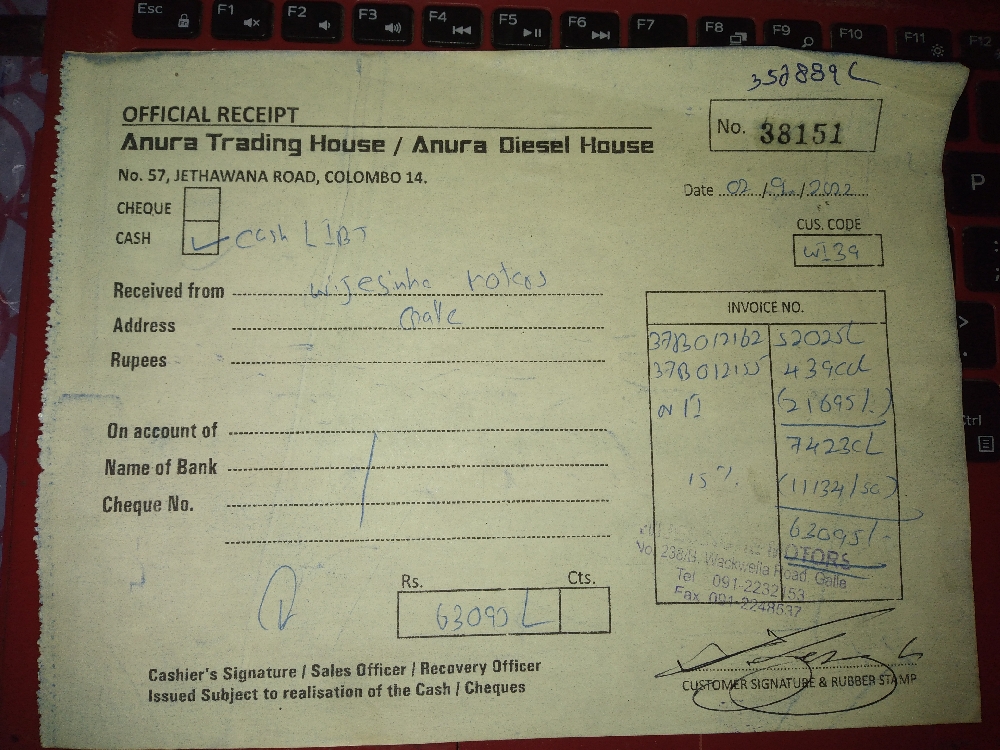 Esc F1 F2 F3 F4 F5 F6 F7 F8 F9 F10 F11 F12
P
OFFICIAL RECEIPT
Anura Trading House / Anura Diesel House
No. 38151
No. 57, JETHAWANA ROAD, COLOMBO 14.
Date 02/9/2022
CHEQUE
CASH ✓ cash
CUS. CODE
WI39
Received from wijesinha
Address Galle
Rupees
INVOICE NO.
37B012162 52025/-
37B012155
(21695/-)
15%. (11134/50)
63095/-
On account of
Name of Bank
Cheque No.
OTORS
No. 238/B, Wackwella Road, Galle
Tel 091-2232153
Fax 091-2248537
Rs. Cts.
63095/-
Cashier's Signature / Sales Officer / Recovery Officer
Issued Subject to realisation of the Cash / Cheques
CUSTOMER SIGNATURE & RUBBER STAMP